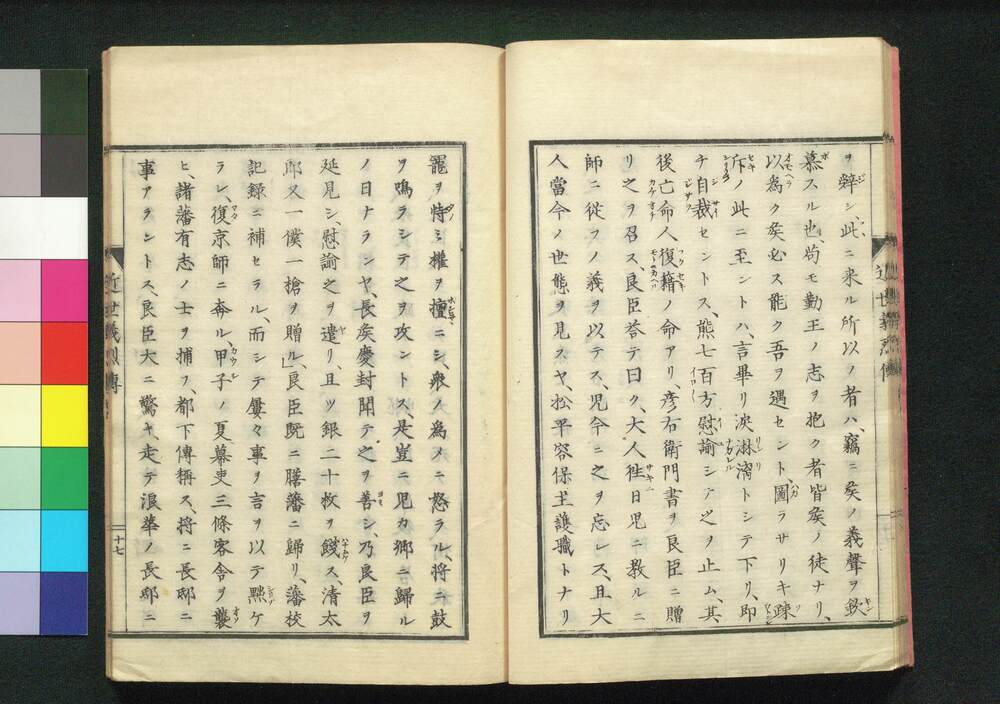 ヲ辤シ、此ニ来ル所以ノ者ハ、竊ニ矦ノ義聲ヲ欽
慕スル也、苟モ勤王ノ志ヲ抱ク者皆矦ノ徒ナリ、
以為ク矦必ス能ク吾ヲ遇セント圖ラサリキ疎
斥ノ此ニ至ントハ、言畢リ涙淋漓トシテ下リ、即
チ自裁セントス、熊七百方慰諭シテ之ヲ止ム、其
後亡命人復籍ノ命アリ、彦右衛門書ヲ良臣ニ贈
リ之ヲ召ス、良臣荅テ曰ク、大人徃日児ニ教ルニ
師ニ從フノ義ヲ以テス、児今ニ之ヲ忘レス、且大
人當今ノ世態ヲ見スヤ、松平容保守護職トナリ
寵ヲ恃ミ權ヲ擅ニシ、衆ノ為メニ怒ラル、将ニ鼓
ヲ鳴ラシテ之ヲ攻ントス、是豈ニ児カ郷ニ歸ル
ノ日ナランヤ、長矦慶封聞テ之ヲ善シ、乃良臣ヲ
延見シ、慰諭之ヲ遣リ、且ツ銀二十枚ヲ餞ス、清太
郎又一僕一槍ヲ贈ル」良臣既ニ膳藩ニ歸リ、藩校
記録ニ補セラル、而シテ屢々事ヲ言ヲ以テ黜ケ
ラレ、復京師ニ奔ル、甲子ノ夏幕吏三條客舎ヲ襲
ヒ、諸藩有志ノ士ヲ捕フ、都下傳稱ス、将ニ長邸ニ
事アラントス、良臣大ニ驚キ、走テ浪華ノ長邸ニ
近世義烈傳
十七